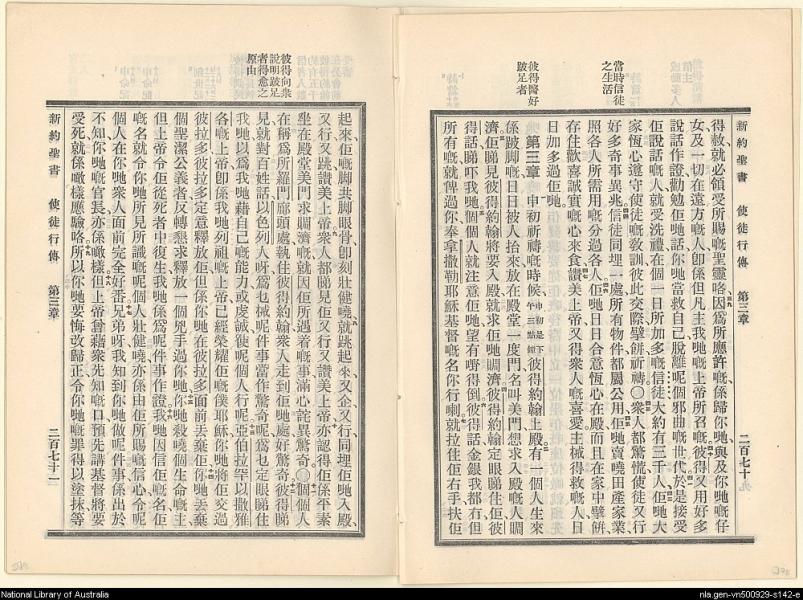 新約聖書 使徒行傳 第三章 二百七十
得赦就必領受所賜嘅聖靈咯因爲所應許嘅係歸你哋與及你哋嘅仔
女及一切在遠方嘅人卽係但凡主我哋嘅上帝所召嘅彼得又用好多
說話作證勸勉佢哋話你哋當救自己脫離呢個邪曲嘅世代於是接受
佢說話嘅人就受洗禮在個一日所加多嘅信徒大約有三千人佢哋大
家恆心遵守使徒嘅敎訓彼此交際擘餅祈禱〇衆人都驚慌使徒又行
好多奇事異兆信徒同埋一處所有物件都屬公用佢哋賣嘵田產家業
照各人所需用嘅分過各人佢哋日日合意恆心在殿而且在家中擘餅
存住歡喜誠實嘅心來食讚美上帝又得衆人嘅喜愛主械得救嘅人日
日加多過佢哋
當時信徒之生活
第三章 申初祈禱嘅時候申初是下午三點鐘彼得約翰上殿有一個人生來
係跛脚嘅日日被人抬來放在殿堂一度門名叫美門想求入殿嘅人賙
濟佢睇見彼得約翰將要入殿就求佢哋賙濟彼得約翰定眼睇住佢彼
得話睇吓我哋個個人就注意佢哋望有嘢得倒彼得話金銀我都冇但
所有嘅就俾過你奉拿撒勒耶穌基督嘅名你行喇就拉住佢右手扶佢
彼得醫好跛足者
新約聖書 使徒行傳 第三章 二百七十一
起來佢嘅脚共脚眼骨卽刻壯健嘵就跳起來又企又行同埋佢哋入殿
又行又跳讚美上帝衆人都睇見佢又行又讚美上帝亦認得佢係平素
坐在殿堂美門求賙濟嘅就因佢所遇着嘅事滿心詫異驚奇〇個個人
在稱爲所羅門廊頭處執住彼得約翰衆人走到佢哋處好驚奇彼得睇
見就對百姓話以色列人呀爲乜械呢件事當作驚奇呢爲乜定眼睇住
我哋以爲我哋藉自己嘅能力或虔誠使呢個人行呢亞伯拉罕以撒雅
各嘅上帝卽係我哋列祖嘅上帝已經榮耀佢嘅僕耶穌你哋將佢交過
彼拉多彼拉多定意釋放佢但係你哋在彼拉多面前丟棄佢你哋丟棄
個聖潔公義者反轉懇求釋放一個兇手過你哋你哋殺嘵個生命嘅主
但上帝令佢從死者中復生我哋係爲呢件事作證我哋因信佢嘅名佢
嘅名就令你哋所見所識嘅呢個人壯健嘵亦係由佢所賜嘅信心令呢
個人在你哋衆人面前完全好番兄弟呀我知到你哋做呢件事係出於
不知你哋嘅官長亦係噉樣但上帝曾藉衆先知嘅口預先講基督將要
受死就係噉樣應驗咯所以你哋要悔改歸正令你哋嘅罪得以塗抹等
彼得向衆說明跛足者得愈之原由
National Library of Australia
nla.gen-vn500929-s142-e